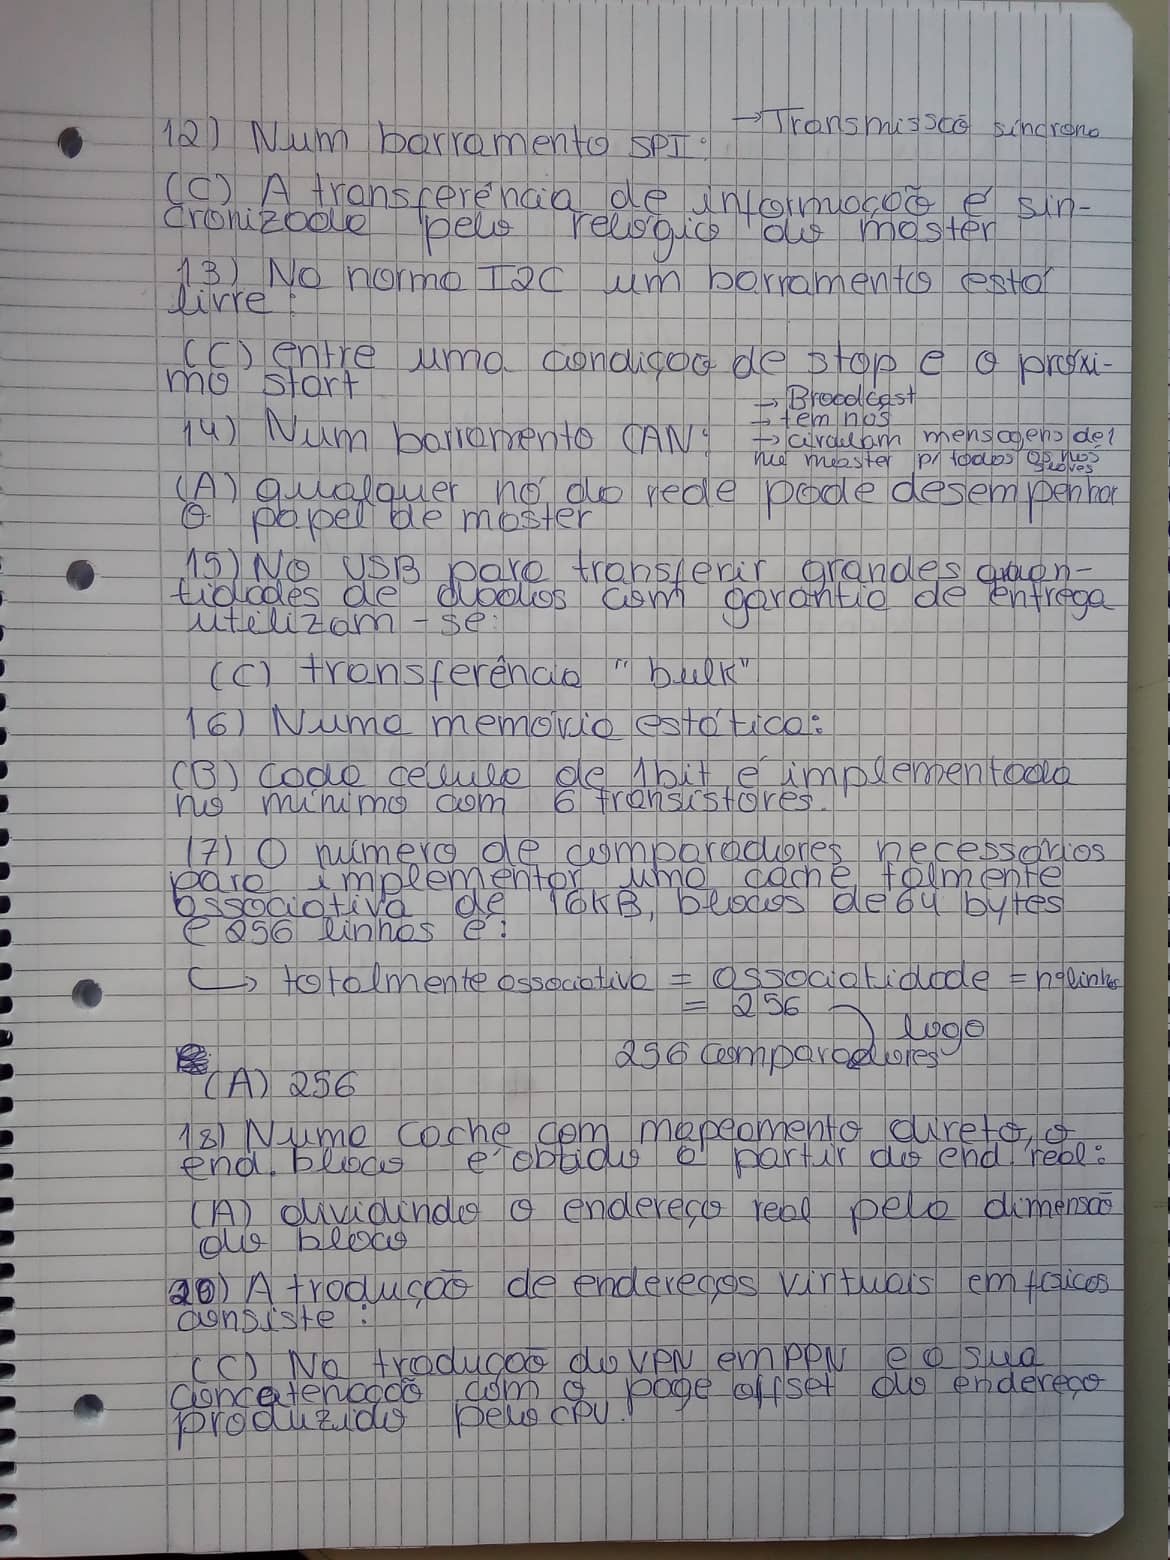 12) Num barramento SPI: → Transmissão síncrona
(C) A transferência de informação é sin-
cronizada pelo relógio do master
13) Na norma I2C um barramento está
livre:
(C) entre uma condição de stop e o próxi-
mo start
→ Broadcast
→ tem nós
14) Num barramento CAN: → circulam mensagens de 1
nó master p/ todos os nós
slaves
(A) qualquer nó da rede pode desempenhar
o papel de master
15) No USB para transferir grandes quan-
tidades de dados com garantia de entrega
utilizam-se:
(C) transferência "bulk"
16) Numa memória estática:
(B) cada célula de 1bit é implementada
no mínimo com 6 transístores.
17) O número de comparadores necessários
para implementar uma cache talmente
associativa de 16KB, blocos de 64 bytes
e 256 linhas é:
↳ totalmente associativa = associatidade = nº linhas
= 256
logo
256 comparadores
(A) 256
18) Numa cache com mapeamento direto, o
end. bloco é obtido a partir do end. real:
(A) dividindo o endereço real pela dimensão
do bloco
20) A tradução de endereços virtuais em físicos
consiste:
(C) Na tradução do VPN em PPN e a sua
concatenação com o page offset do endereço
produzido pelo CPU.